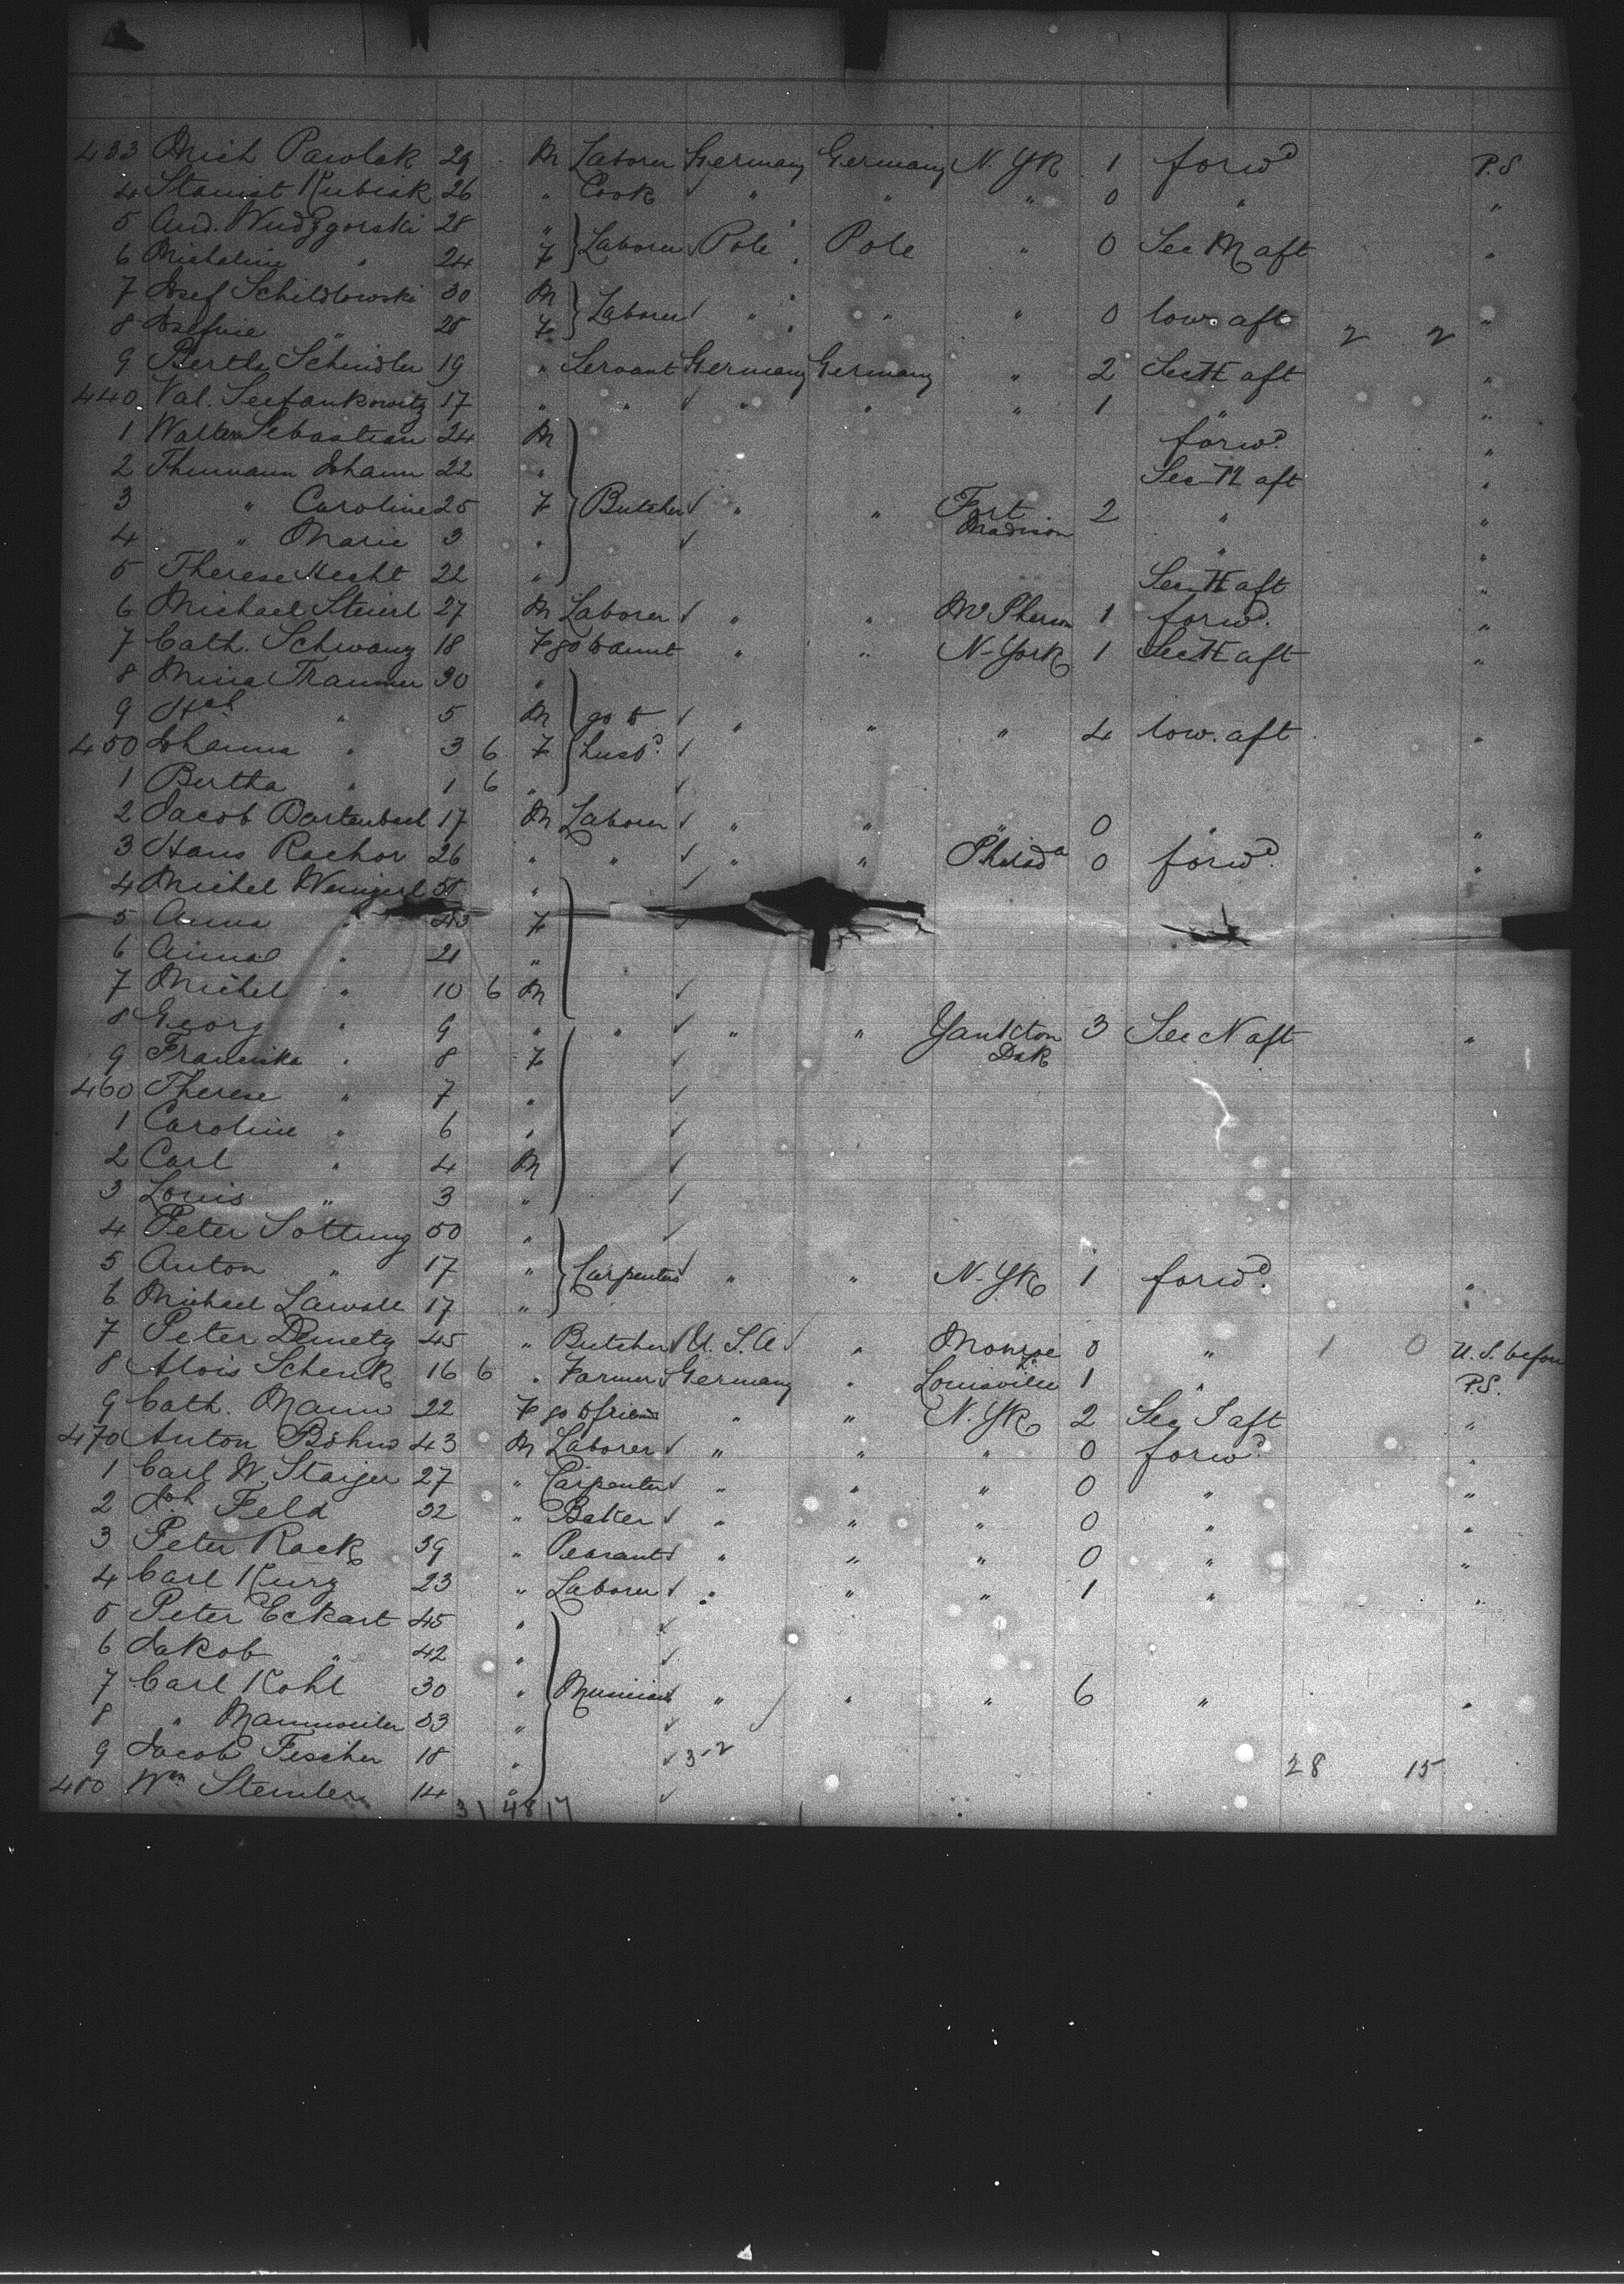 433 Mich Pawlak 29 M Laborer Germany Germany N. Yk 1 forwd P.S
4 Stanist Kubiak 26 " Cook " " " 0 " "
5 And. Wudzgorski 28 "
6 Micheline " 24 F Laborer Pole Pole " 0 Sec M aft "
7 Josef Schildlowski 30 M
8 Josefine " 28 F Laborer " " " 0 low. aft 2 2 "
9 Bertha Schindler 19 " Servant Germany Germany " 2 Sec H aft "
440 Val. Seefankowitz 17 " " " " " 1 " "
1 Walter Sebastian 24 M forwd "
2 Thurmann Johann 22 " Sec H aft "
3 " Caroline 25 F Butcher " " Fort Madison 2 " "
4 " Marie 3 " " "
5 Therese Hecht 22 " Sec H aft "
6 Michael Steierl 27 M Laborer " " McPherson 1 forwd. "
7 Cath. Schwanz 18 F go to aunt " " N-York 1 Sec H aft "
8 Mina Trammer 30 "
9 " 5 M go to " " " 4 low. aft "
450 Johanna " 3 6 F husbd.
1 Bertha " 1 6 "
2 Jacob Bartenbach 17 M Laborer " " " 0 " "
3 Hans Rachor 26 " " " " Philada 0 forwd "
4 Michel "
5 Anna " 43 F
6 Anna " 21 "
7 Michel " 10 6 M
8 Georg " 9 " " " " Yankton Dak 3 Sec N aft "
9 Franziska " 8 F
460 Therese " 7 "
1 Caroline " 6 "
2 Carl " 4 M
3 Louis " 3 "
4 Peter Sottung 50 "
5 Anton " 17 " Carpenters " " N-Yk 1 forwd. "
6 Michael Lawall 17 "
7 Peter Demetz 45 " Butcher U. S. A " Monroe 0 " 1 0 U. S. before
8 Alois Schenk 16 6 " Farmer Germany " Louisville 1 " P.S.
9 Cath. Mann 22 F go to friend " " N. Yk 2 Sec J aft "
470 Anton Böhm 43 M Laborer " " " 0 forwd "
1 Carl W. Staiger 27 " Carpenter " " " 0 " "
2 Joh Feld 32 " Baker " " " 0 " "
3 Peter Rack 39 " Peasant " " " 0 " "
4 Carl Kurz 23 " Laborer " " " 1 " "
5 Peter Eckart 45 "
6 Jakob " 42 "
7 Carl Kohl 30 " Musicians " " " 6 " "
8 " Mannweiler 33 "
9 Jacob Fischer 18 " 3-2 28 15
480 Wm Stemler 14 "
31 48 17